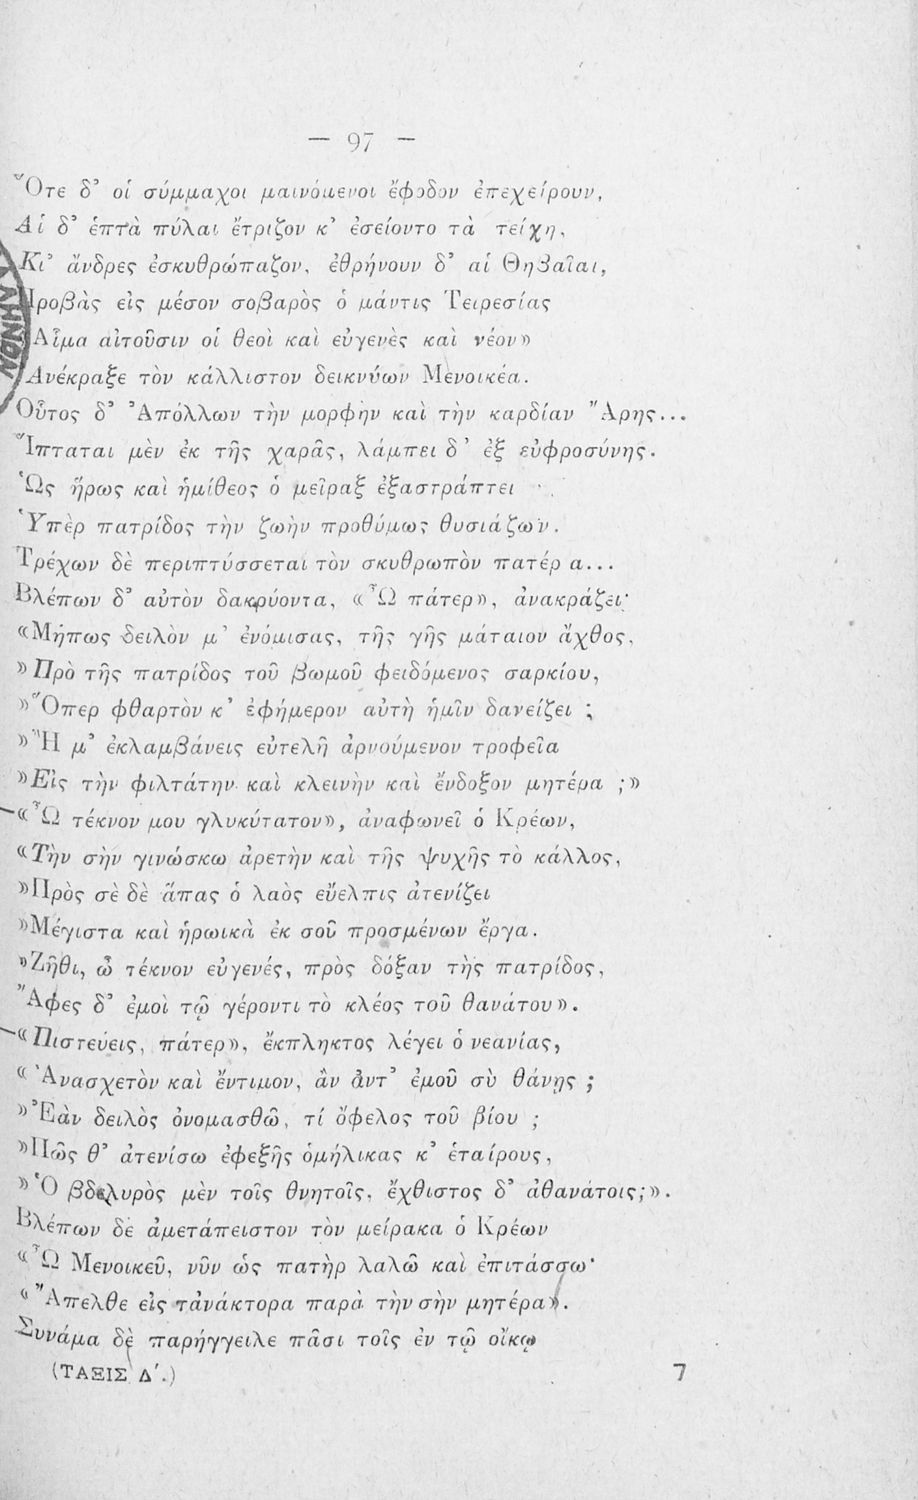 — 97 —
Ὅτε δ’ οἱ σύμμαχοι μαινόμενοι ἔφοδον ἐπεχείρουν,
Αἱ δ’ ἑπτὰ πύλαι ἔτριζον κ’ ἐσείοντο τὰ τείχη,
Κι’ ἄνδρες ἐσκυθρώπαζον, ἐθρήνουν δ’ αἱ Θηβαῖαι,
Προβὰς εἰς μέσον σοβαρὸς ὁ μάντις Τειρεσίας
«Αἷμα αἰτοῦσιν οἱ θεοὶ καὶ εὐγενὲς καὶ νέον»
Ἀνέκραξε τὸν κάλλιστον δεικνύων Μενοικέα.
Οὗτος δ’ Ἀπόλλων τὴν μορφὴν καὶ τὴν καρδίαν Ἄρης...
Ἵπταται μὲν ἐκ τῆς χαρᾶς, λάμπει δ’ ἐξ εὐφροσύνης.
Ὡς ἥρως καὶ ἡμίθεος ὁ μεῖραξ ἐξαστράπτει
Ὑπὲρ πατρίδος τὴν ζωὴν προθύμως θυσιάζων.
Τρέχων δὲ περιπτύσσεται τὸν σκυθρωπὸν πατέρα...
Βλέπων δ’ αὐτὸν δακρύοντα, «Ὦ πάτερ», ἀνακράζει·
«Μήπως δειλὸν μ’ ἐνόμισας, τῆς γῆς μάταιον ἄχθος,
»Πρὸ τῆς πατρίδος τοῦ βωμοῦ φειδόμενος σαρκίου,
»Ὅπερ φθαρτὸν κ’ ἐφήμερον αὐτὴ ἡμῖν δανείζει ;
»Ἢ μ’ ἐκλαμβάνεις εὐτελῆ ἀρνούμενον τροφεῖα
»Εἰς τὴν φιλτάτην καὶ κλεινὴν καὶ ἔνδοξον μητέρα ;»
—«Ὦ τέκνον μου γλυκύτατον», ἀναφωνεῖ ὁ Κρέων,
«Τὴν σὴν γινώσκω ἀρετὴν καὶ τῆς ψυχῆς τὸ κάλλος,
»Πρὸς σὲ δὲ ἅπας ὁ λαὸς εὔελπις ἀτενίζει
»Μέγιστα καὶ ἡρωικὰ ἐκ σοῦ προσμένων ἔργα.
»Ζῆθι, ὦ τέκνον εὐγενές, πρὸς δόξαν τῆς πατρίδος,
Ἄφες δ’ ἐμοὶ τῷ γέροντι τὸ κλέος τοῦ θανάτου».
—«Πιστεύεις, πάτερ», ἔκπληκτος λέγει ὁ νεανίας,
«Ἀνασχετὸν καὶ ἔντιμον, ἂν ἀντ’ ἐμοῦ σὺ θάνῃς ;
»Ἐὰν δειλὸς ὀνομασθῶ, τί ὄφελος τοῦ βίου ;
»Πῶς θ’ ἀτενίσω ἐφεξῆς ὁμήλικας κ’ ἑταίρους,
»Ὁ βδελυρὸς μὲν τοῖς θνητοῖς, ἔχθιστος δ’ ἀθανάτοις;».
Βλέπων δὲ ἀμετάπειστον τὸν μείρακα ὁ Κρέων
«Ὦ Μενοικεῦ, νῦν ὡς πατὴρ λαλῶ καὶ ἐπιτάσσω·
«Ἄπελθε εἰς τἀνάκτορα παρὰ τὴν σὴν μητέρα».
Συνάμα δὲ παρήγγειλε πᾶσι τοῖς ἐν τῷ οἴκῳ
(ΤΑΞΙΣ Δ΄.) 7